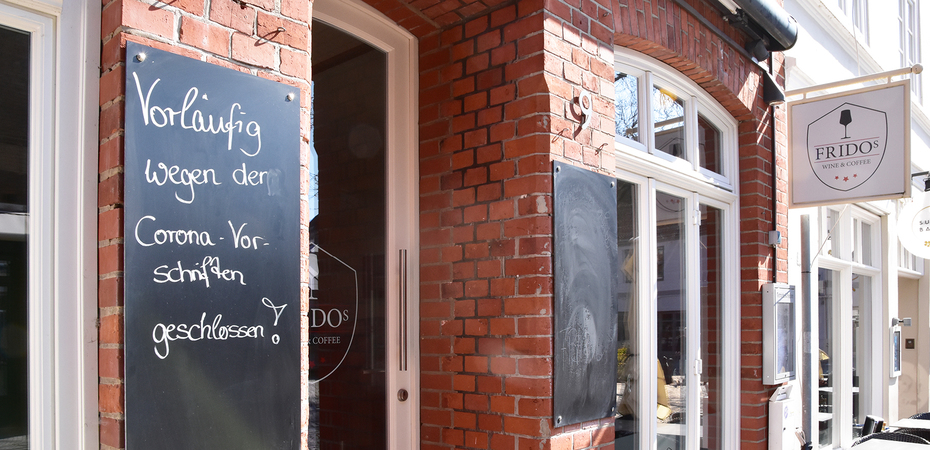 Vorläufig
wegen der
Corona-Vor-
schriften
geschlossen!
9
FRIDOS
WINE & COFFEE
RIDOS
& COFFEE